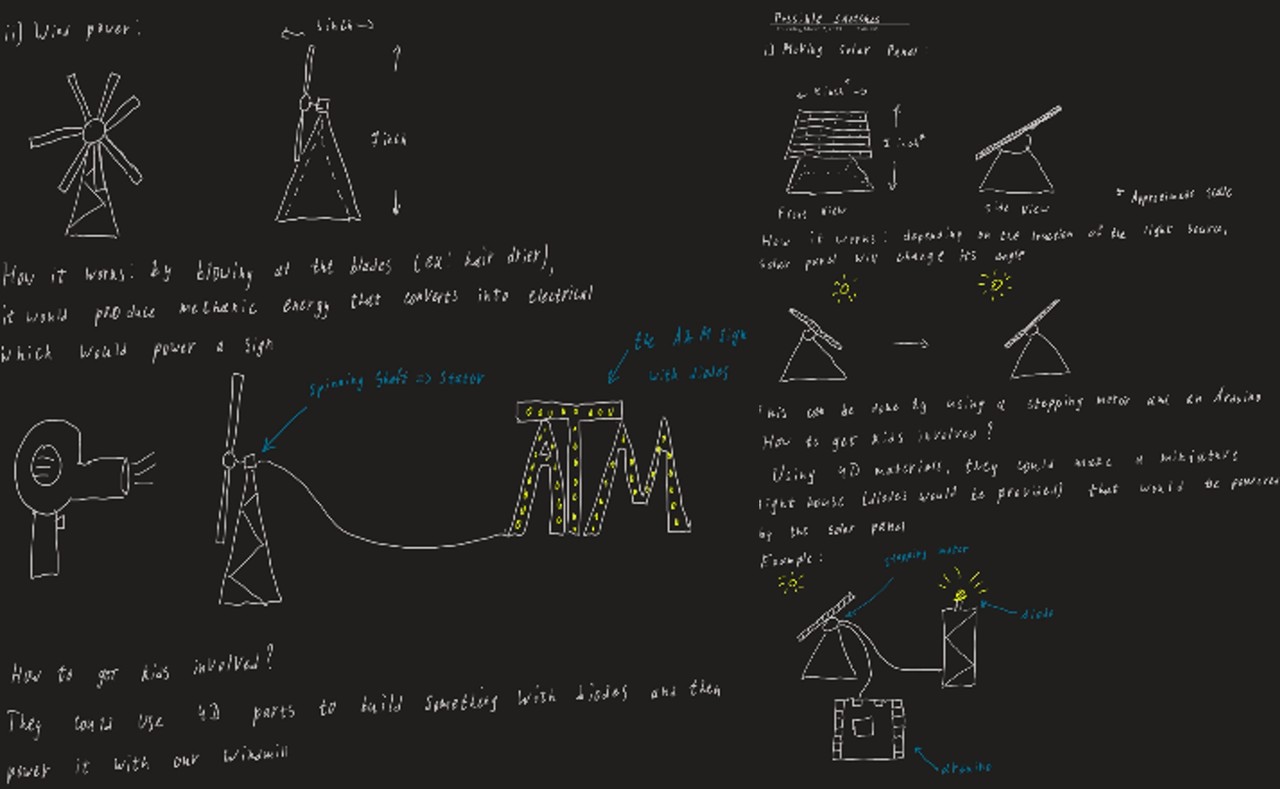 ii) Wind power:
5inch
inch
How it works: by blowing at the blades (ex: hair drier),
it would produce mechanic energy that converts into electrical
Which would power a sign
the A&M sign
with diodes
spinning shaft => stator
ATM
How to get kids involved?
They could use 4D parts to build something with diodes and then
power it with our windmill
Possible sketches
i) Moving Solar Panel:
inch*
inch*
Front view
Side view
* Approximate scale
How it works: depending on the of the light source,
solar panel will change its angle
This can be done by using a stepping motor and an Arduino
How to get kids involved?
Using 4D materials, they could make a miniature
light house (diodes would be provided) that would be powered
by the solar panel
Example:
stepping motor
diode
arduino